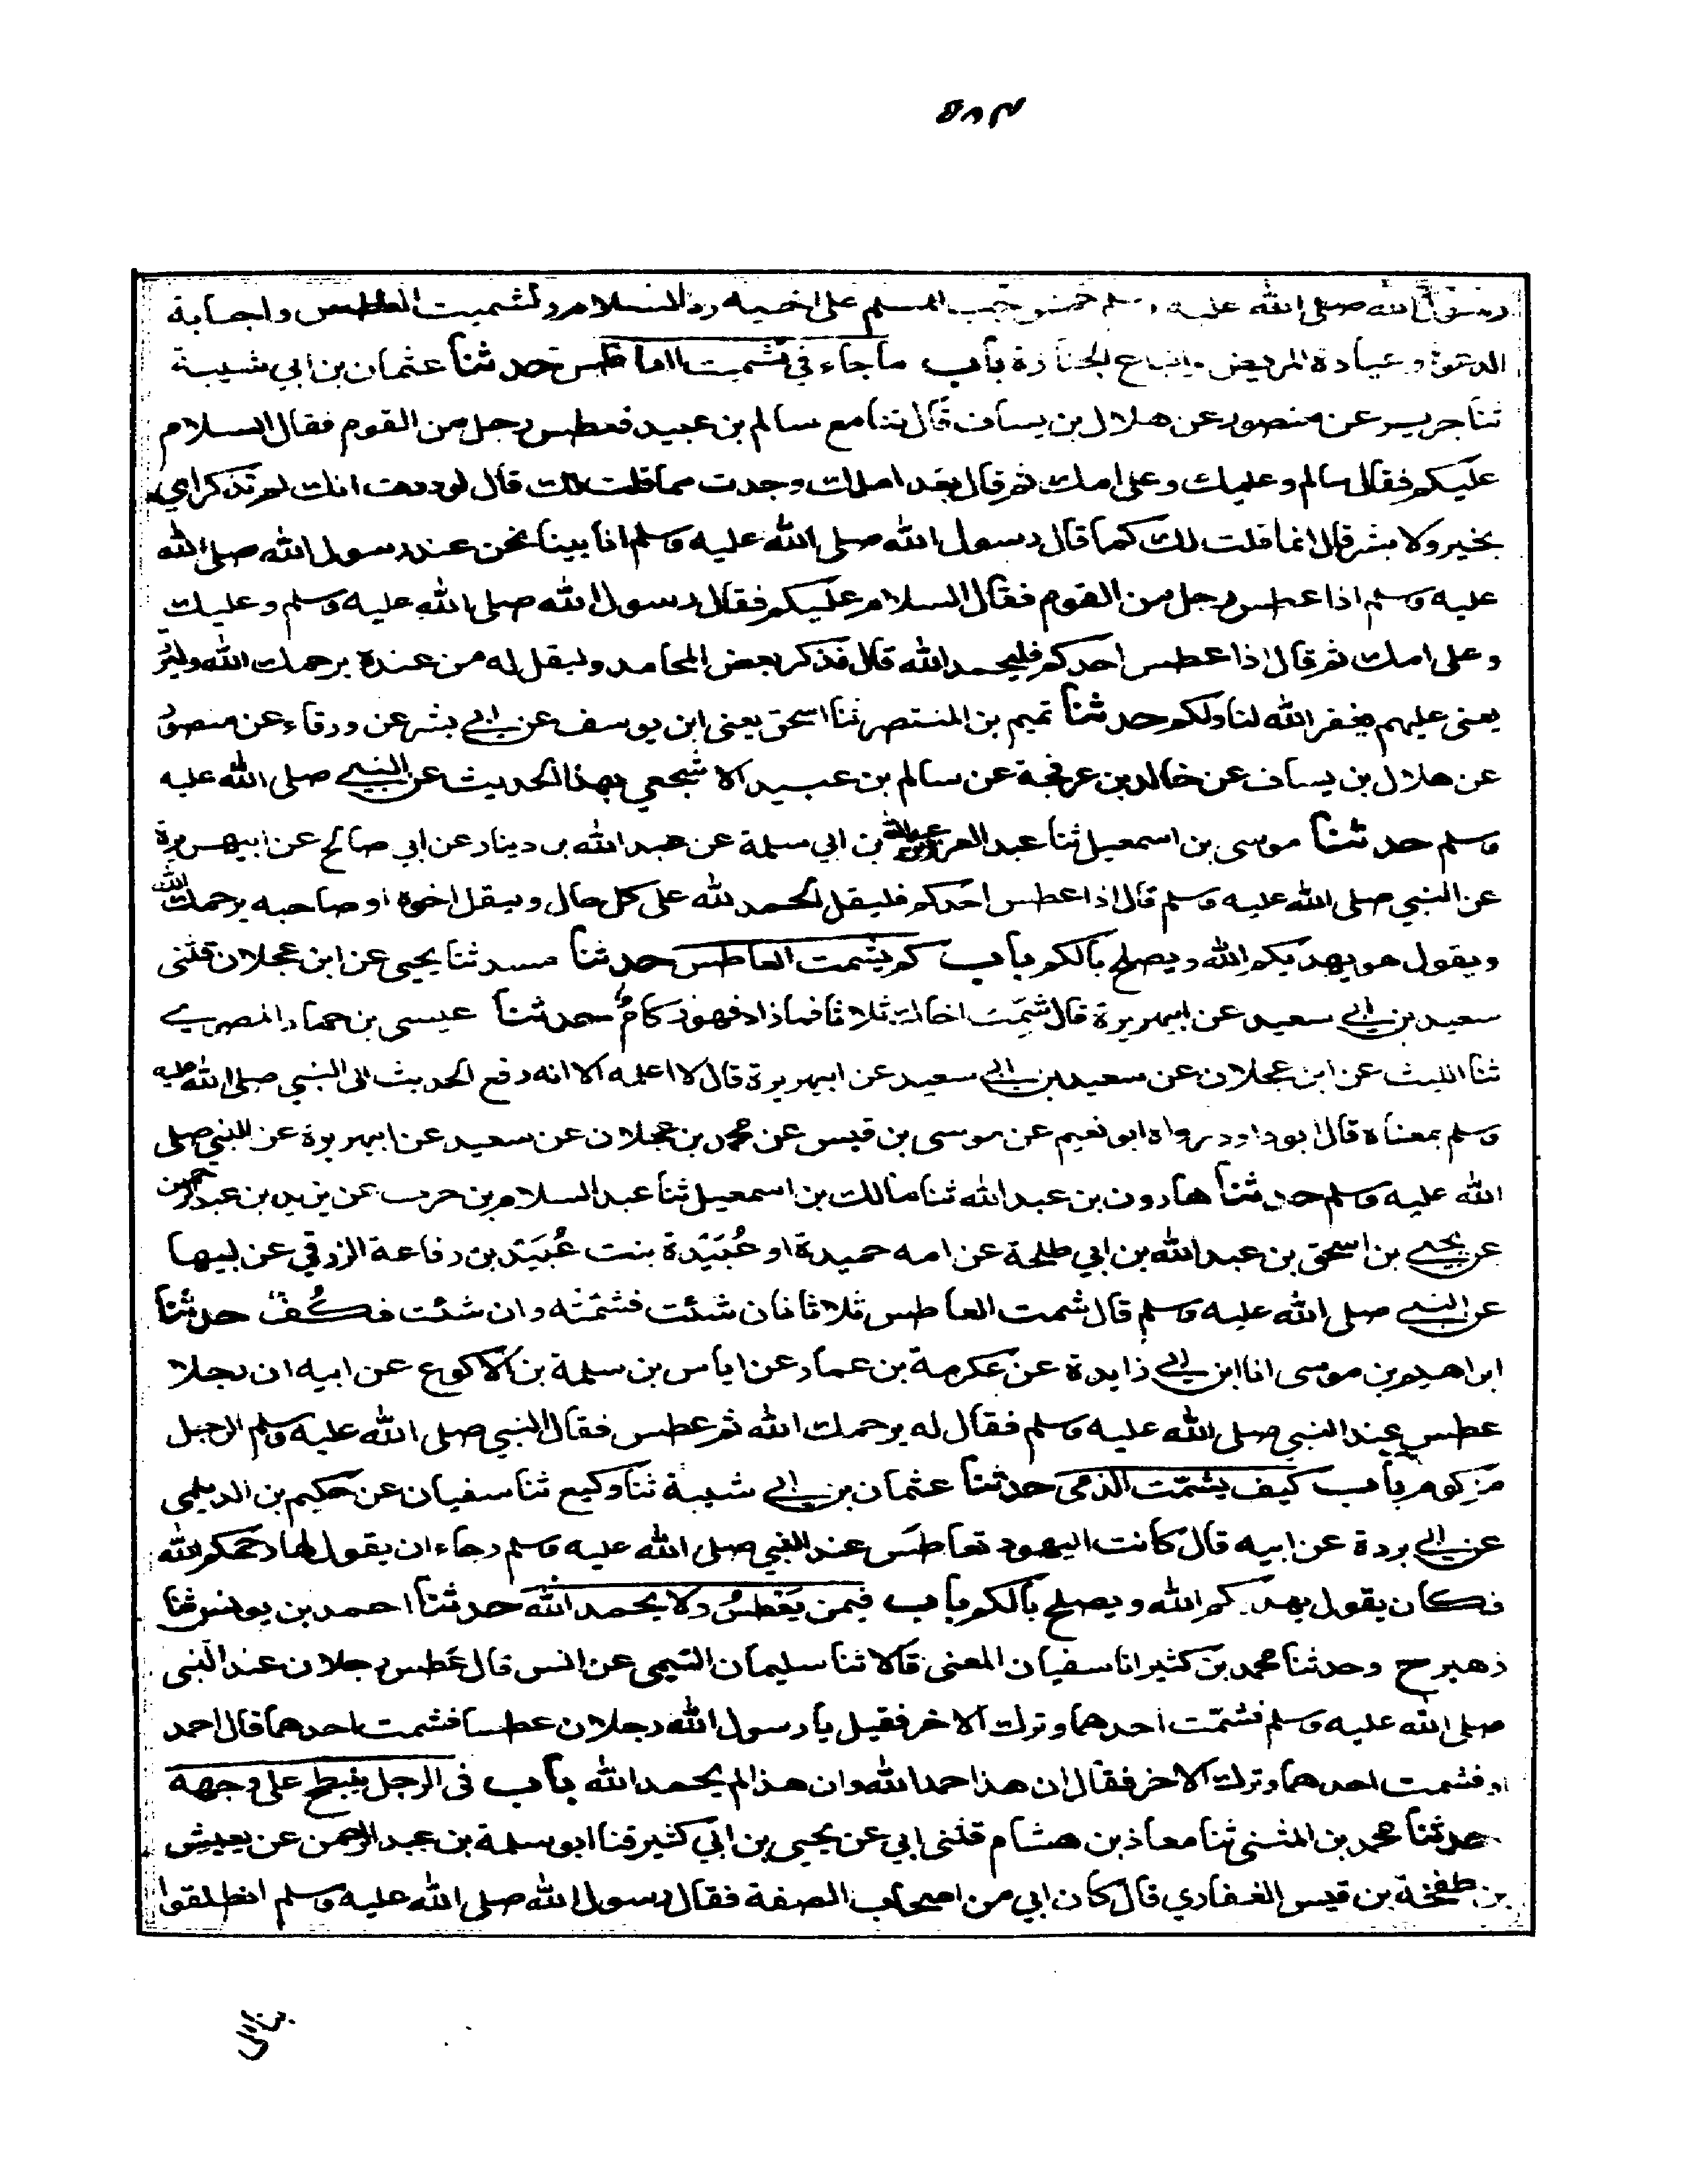 رسول الله صلى الله عليه وسلم خمس تجب للمسلم على اخيه رد السلام وتشميت العاطس واجابة
الدعوة وعيادة المريض واتباع الجنازة باب ما جاء في تشميت العاطس حدثنا عثمان بن ابي شيبة
ثنا جرير عن منصور عن هلال بن يساف قال كنا مع سالم بن عبيد فعطس رجل من القوم فقال السلام
عليكم فقال سالم وعليك وعلى امك ثم قال بعد لعلك وجدت مما قلت لك قال لوددت انك لم تذكر امي
بخير ولا بشر قال انما قلت لك كما قال رسول الله صلى الله عليه وسلم انا بينا نحن عند رسول الله صلى الله
عليه وسلم اذا عطس رجل من القوم فقال السلام عليكم فقال رسول الله صلى الله عليه وسلم وعليك
وعلى امك ثم قال اذا عطس احدكم فليحمد الله قال فذكر بعض المحامد وليقل له من عنده يرحمك الله وليرد
يعني عليهم يغفر الله لنا ولكم حدثنا تميم بن المنتصر ثنا اسحق يعني ابن يوسف عن ابي بشر عن ورقاء عن منصور
عن هلال بن يساف عن خالد بن عرفجة عن سالم بن عبيد الاشجعي بهذا الحديث عن النبي صلى الله عليه
وسلم حدثنا موسى بن اسمعيل ثنا عبد العزيز بن عبد الله بن ابي سلمة عن عبد الله بن دينار عن ابي صالح عن ابيهريرة
عن النبي صلى الله عليه وسلم قال اذا عطس احدكم فليقل الحمد لله على كل حال وليقل اخوه او صاحبه يرحمك الله
ويقول هو يهديكم الله ويصلح بالكم باب كم يشمت العاطس حدثنا مسدد ثنا يحيى عن ابن عجلان قثنى
سعيد بن ابي سعيد عن ابيهريرة قال شمت اخاك ثلاثا فما زاد فهو زكام حدثنا عيسى بن حماد المصري
ثنا الليث عن ابن عجلان عن سعيد بن ابي سعيد عن ابيهريرة قال لا اعلمه الا انه رفع الحديث الى النبي صلى الله عليه
وسلم بمعناه قال ابوداود رواه ابونعيم عن موسى بن قيس عن محمد بن عجلان عن سعيد عن ابيهريرة عن النبي صلى
الله عليه وسلم حدثنا هارون بن عبد الله ثنا مالك بن اسمعيل ثنا عبد السلام بن حرب عن يزيد بن عبد الرحمن
عن يحيى بن اسحق بن عبد الله بن ابي طلحة عن امه حميدة او عُبَيْدة بنت عُبَيْد بن رفاعة الزرقي عن ابيها
عن النبي صلى الله عليه وسلم قال شمت العاطس ثلاثا فان شئت فشمته وان شئت فكُف حدثنا
ابراهيم بن موسى انا ابن ابي زايدة عن عكرمة بن عمار عن اياس بن سلمة بن الاكوع عن ابيه ان رجلا
عطس عند النبي صلى الله عليه وسلم فقال له يرحمك الله ثم عطس فقال النبي صلى الله عليه وسلم الرجل
مزكوم باب كيف يشمّت الذمي حدثنا عثمان بن ابي شيبة ثنا وكيع ثنا سفيان عن حكيم بن الديلمى
عن ابي بردة عن ابيه قال كانت اليهود تعاطس عند النبي صلى الله عليه وسلم رجاء ان يقول لها يرحمكم الله
فكان يقول يهديكم الله ويصلح بالكم باب فيمن يعطس ولا يحمد الله حدثنا احمد بن يونس ثنا
زهير ح وحدثنا محمد بن كثير انا سفيان المعنى قالا ثنا سليمان التيمي عن انس قال عطس رجلان عند النبي
صلى الله عليه وسلم فشمّت احدهما وترك الاخر فقيل يا رسول الله رجلان عطسا فشمت احدهما قال احمد
او فشمت احدهما وترك الاخر فقال ان هذا حمد الله وان هذا لم يحمد الله باب في الرجل ينبطح على وجهه
حدثنا محمد بن المثنى ثنا معاذ بن هشام قثنى ابي عن يحيى بن ابي كثير قثنا ابو سلمة بن عبد الرحمن عن يعيش
بن طخفة بن قيس الغفاري قال كان ابي من اصحاب الصفة فقال رسول الله صلى الله عليه وسلم انطلقوا